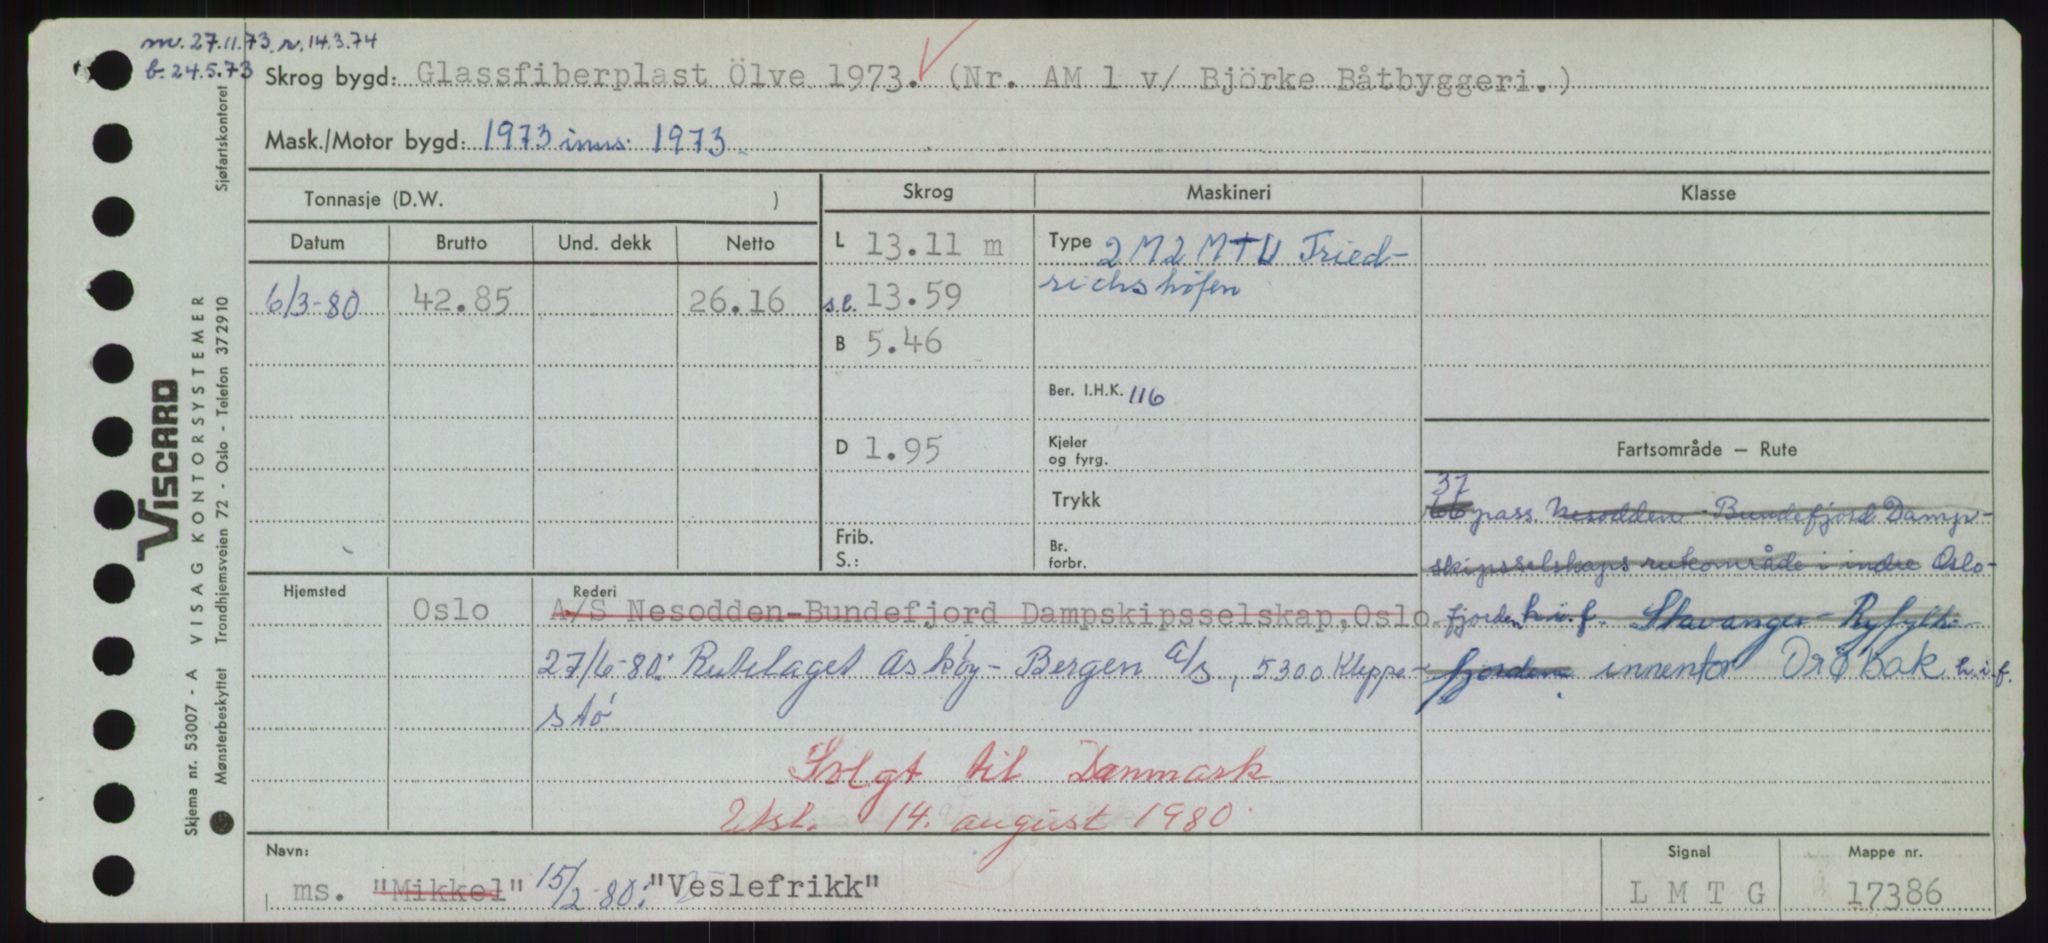 m. 27.11.73. r. 14.3.74
b. 24.5.73
Skrog bygd: Glassfiberplast Ölve 1973. (Nr. AM 1 v/ Björke Båtbyggeri.)
Mask./Motor bygd: 1973 inns. 1973.
Tonnasje (D.W. )
Skrog
Maskineri
Klasse
Datum Brutto Und. dekk Netto
6/3-80 42.85 26.16
L 13.11 m
s.l. 13.59
B 5.46
D 1.95
Frib.
S.:
Type 2 M2 MTU Fried-
richshöfen
Ber. I.H.K. 116
Kjeler
og fyrg.
Trykk
Br.
forbr.
Fartsområde – Rute
37
66 pass. Nesodden-Bundefjord Damp-
skipsselskaps ruteområde i indre Oslo-
fjorden h.i.f. Stavanger-Ryfylke-
fjorden. innenfor Drøbak h.i.f.
Hjemsted
Oslo
Rederi
A/S Nesodden-Bundefjord Dampskipsselskap, Oslo
27/6-80: Rutelaget Askøy-Bergen a/s, 5300 Kleppe-
stø
Solgt til Danmark
Utsl. 14. august 1980.
Navn:
ms. "Mikkel" 15/2-80: "Veslefrikk"
Signal
L M T G
Mappe nr.
17386
VISCARD
Skjema nr. 53007 - A VISAG KONTORSYSTEMER
Mønsterbeskyttet Trondhjemsveien 72 - Oslo - Telefon 372910 Sjøfartskontoret